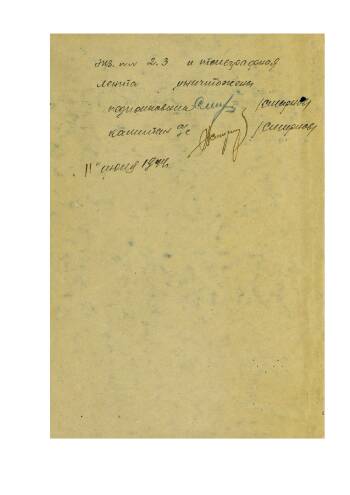 Экз. №№ 2.3 и телеграфная
лента уничтожены
подполковник /Смирнов
капитан а/с /Смирнов
11" июня 194